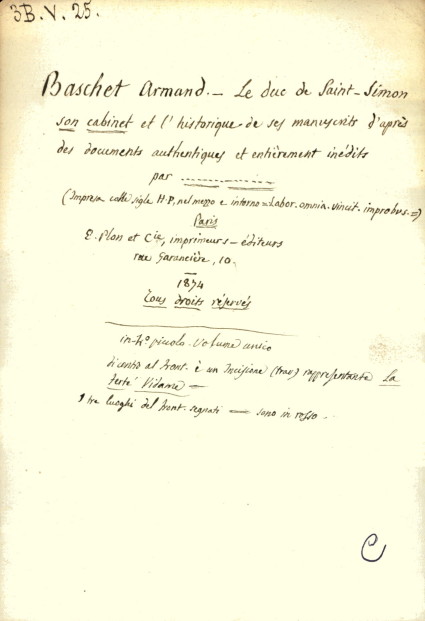 3B.V.25.
Baschet Armand. — Le duc de Saint-Simon
son cabinet et l'historique de ses manuscrits d'après
des documents authentiques et entièrement inédits
par ..............
(Impresa colle sigle H.P. nel mezzo e intorno = Labor. omnia. vincit. improbus. =)
Paris
E. Plon et Cie, imprimeurs - éditeurs
rue Garancière, 10.
1874
Tous droits réservés
in-4º piccolo. Volume unico
dicontro al front. è un Incisione (trav) rappresentante La
Ferté Vidame =
I tre luoghi del front. segnati — sono in rosso.
C